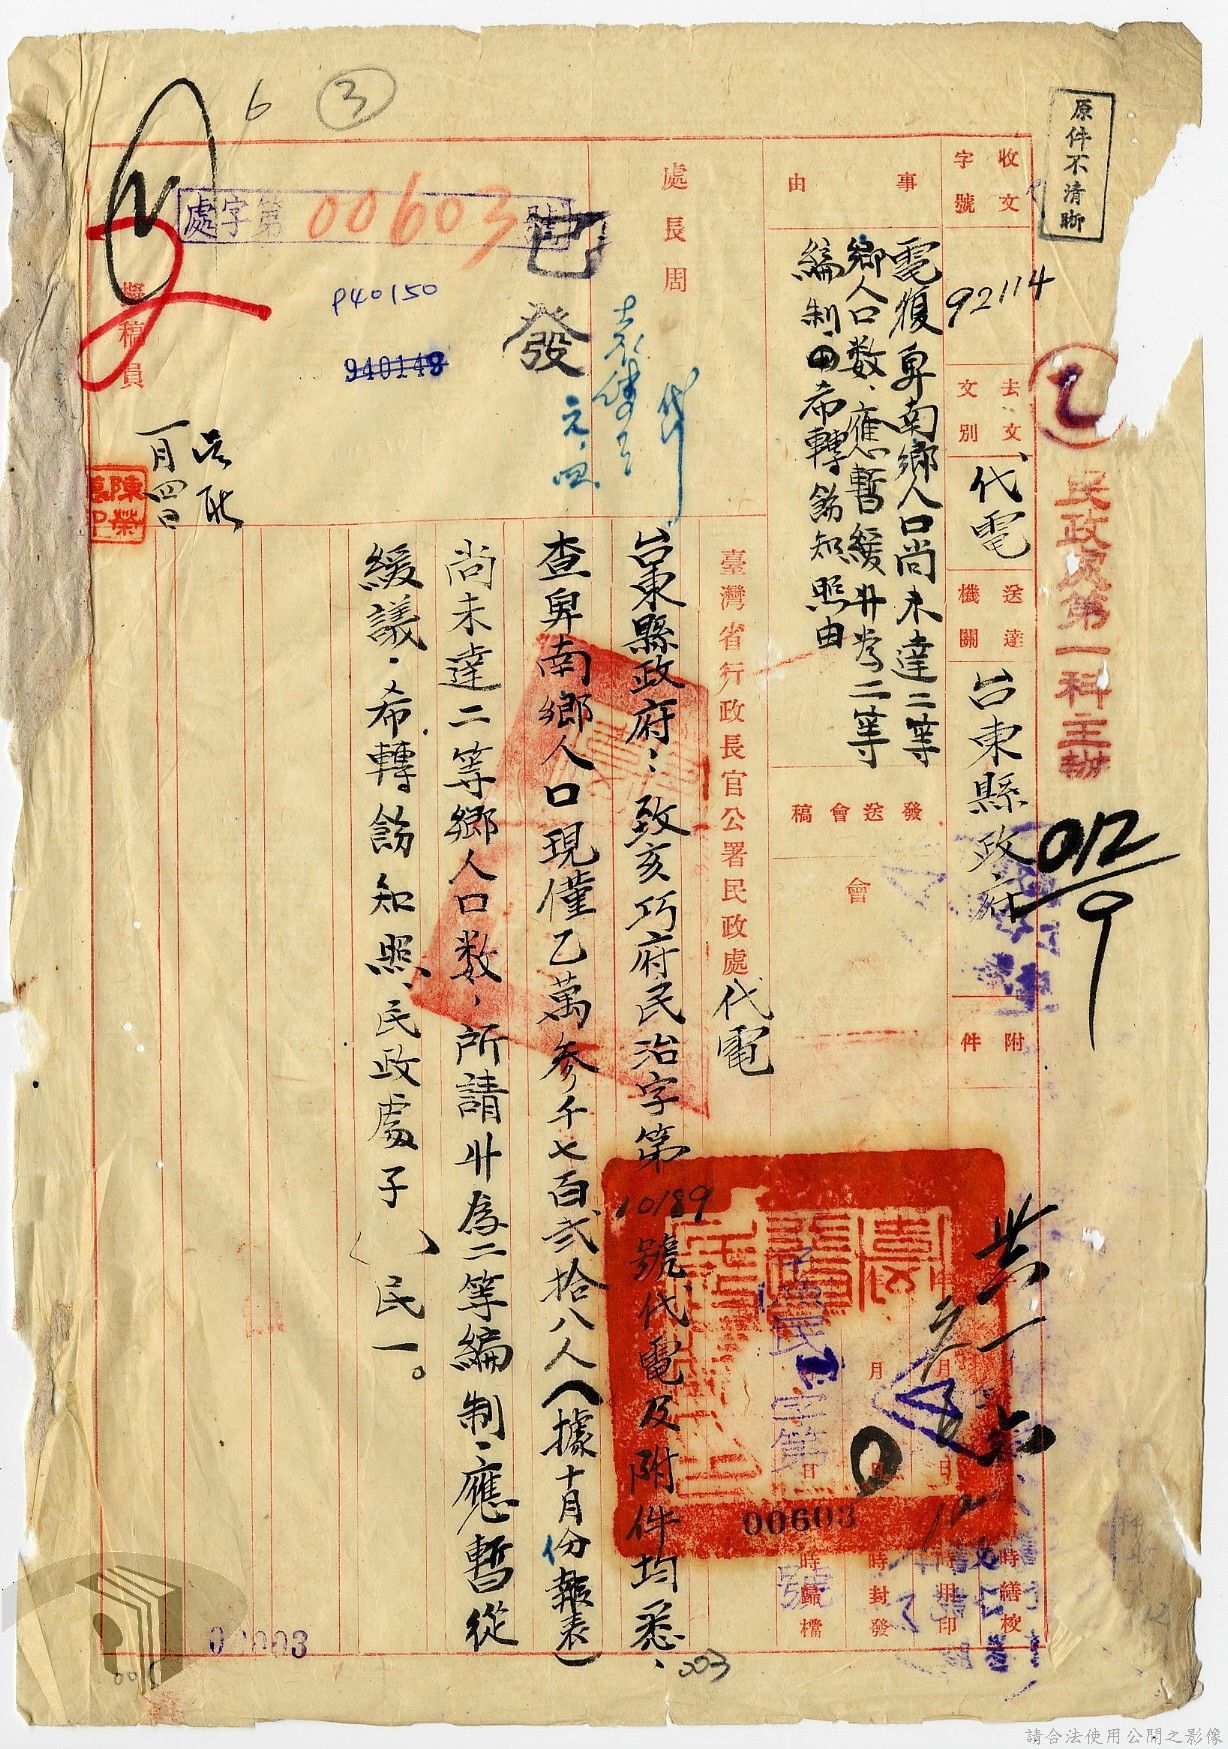 原件不清晰
民政處第一科主辦
收文字號
92114
去文文別
代電
送達機關
台東縣政府
附件
012/9
事由
電復卑南鄉人口尚未達二等
鄉人口數、應暫緩升為二等
編制、希轉飭知照由
發送會稿
會
處長周
代
元、四
臺灣省行政長官公署民政處
代電
台東縣政府：致亥巧府民治字第10189號代電及附件均悉、
查卑南鄉人口現僅乙萬參千七百弍拾八人（據十月份報表）
尚未達二等鄉人口數，所請升為二等編制、應暫從
緩議．希轉飭知照、民政處子（ ）民一。
已發
處字第00603號
P40150
940148
擬稿員
一月四日
6
3
民
字第
00603
號
月
日
時繕校
時用印
時封發
時歸檔
003
00003
005
請合法使用公開之影像